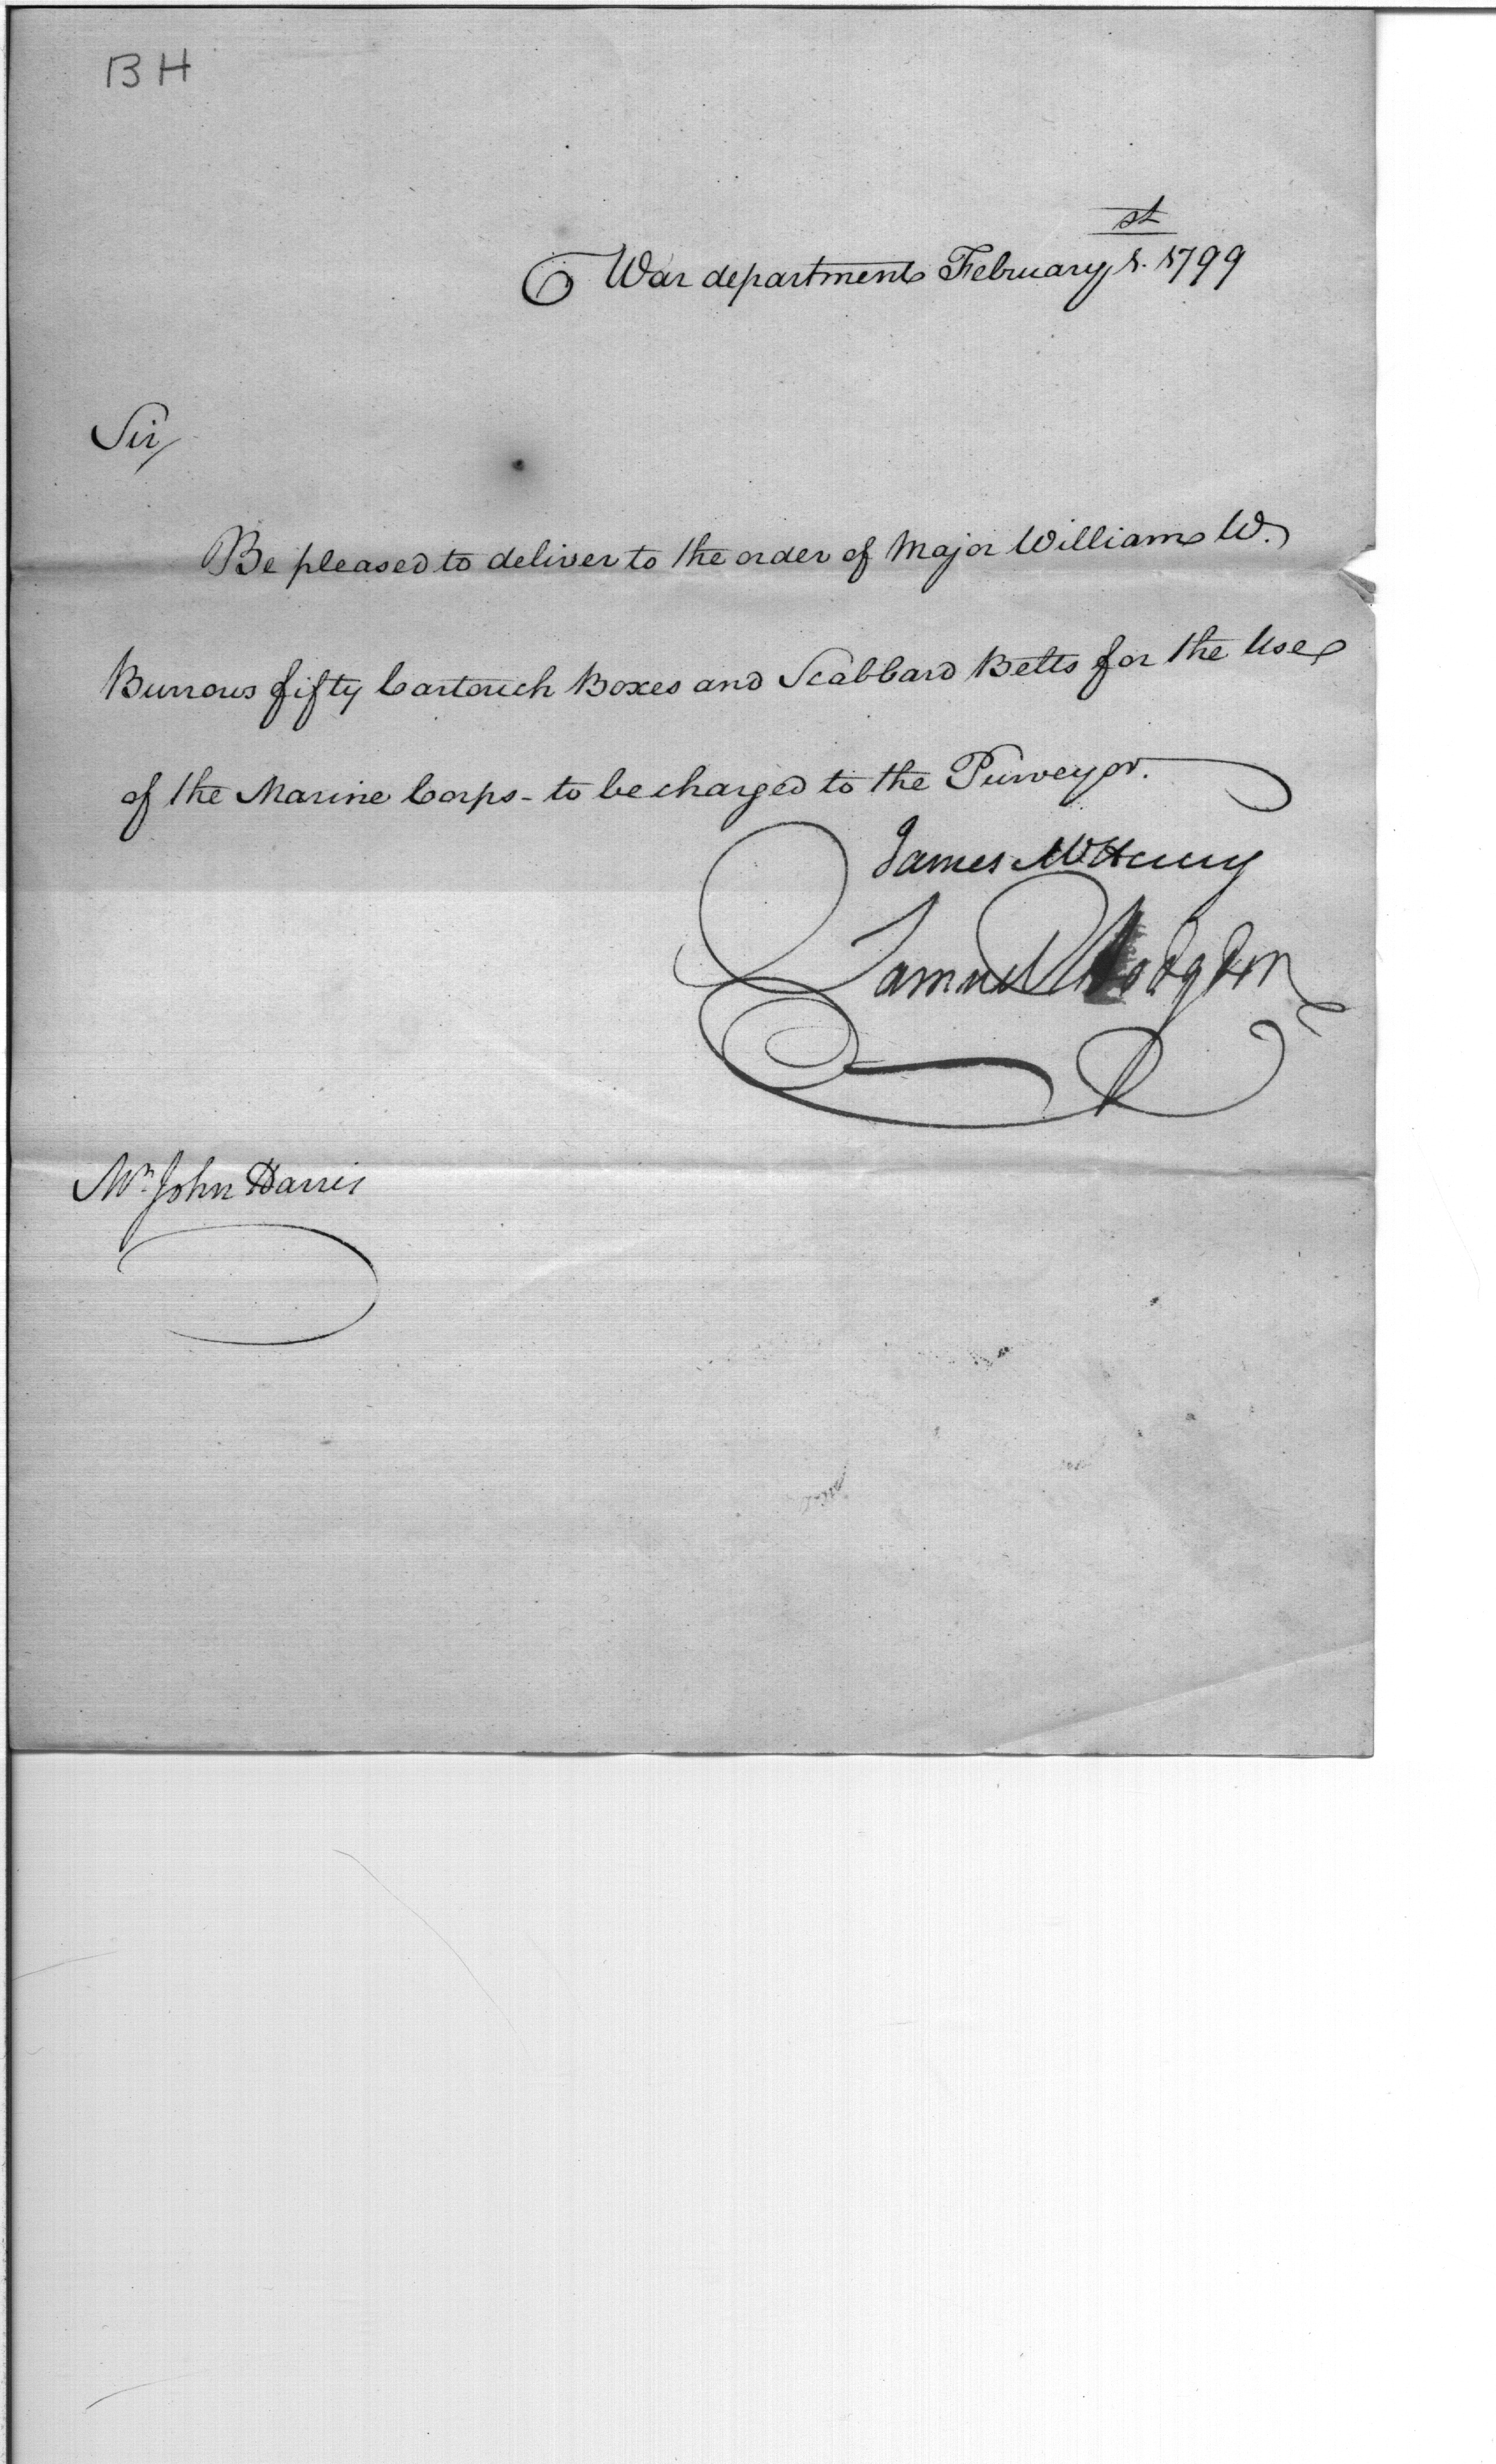 BH
War department February 1st 1799
Sir,
Be pleased to deliver to the order of Major William W.
Burrows fifty Cartouch Boxes and Scabbard Belts for the Use
of the Marine Corps - to be charged to the Purveyor.
James McHenry
Samuel Hodgdon
Mr. John Harris